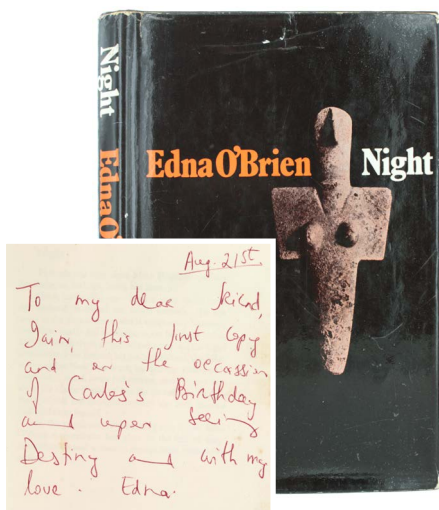 Night
Edna O'
Edna O'Brien Night
Aug. 21st.
To my dear friend,
Iain, this first copy
and on the occassion
of Carlos's Birthday
and upon seeing
Destiny and with my
love. Edna.